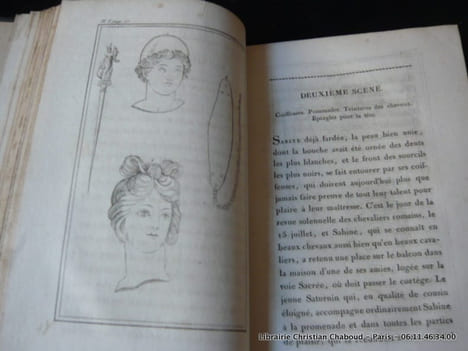 DEUXIÈME SCÈNE.
Coiffeuses. Pommades. Teintures des cheveux.
Épingles pour la tête.
SABINE déjà fardée, la peau bien unie,
dont la bouche avait été ornée des dents
les plus blanches, et le front des sourcils
les plus noirs, se fait entourer par ses coif-
feuses, qui doivent aujourd'hui plus que
jamais faire preuve de tout leur talent pour
plaire à leur maîtresse. C'est le jour de la
revue solennelle des chevaliers romains, le
15 juillet, et Sabine, qui se connaît en
beaux chevaux aussi bien qu'en beaux cava-
liers, a retenu une place sur le balcon dans
la maison d'une de ses amies, logée sur la
voie Sacrée, où doit passer le cortége. Le
jeune Saturnin qui, en qualité de cousin
éloigné, accompagne ordinairement Sabine
à la promenade et dans toutes les parties
de plaisir, qui la
Librairie Christian Chaboud - Paris - 06.11.46.34.00